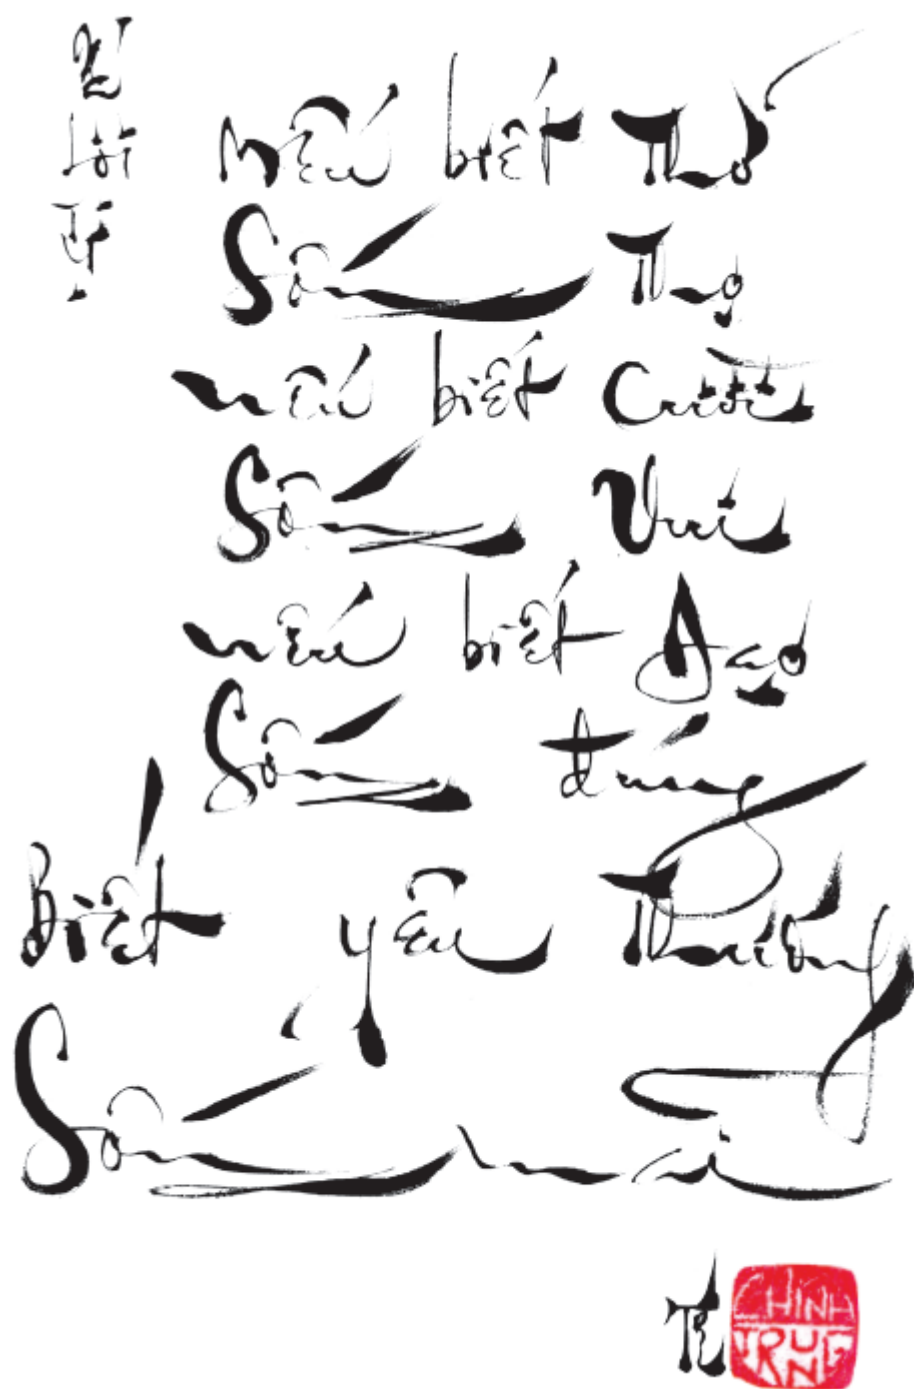 nếu biết Thở
Sống Thọ
nếu biết Cười
Sống Vui
nếu biết Đạo
Sống đúng
Biết yêu Thương
Sống mãi
CHÍNH
TRUNG